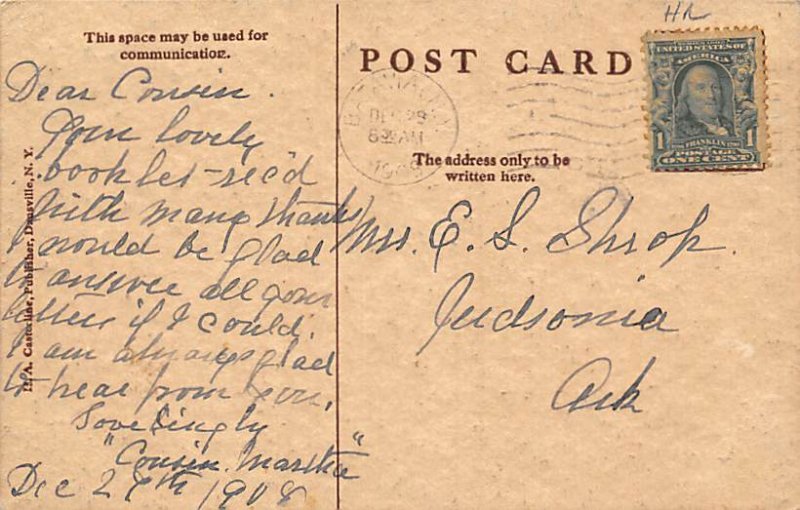 This space may be used for
communication.
Dear Cousin.
Your lovely
booklet rec'd
With many thanks
I would be glad
to answer all your
letters if I could.
I am always glad
to hear from you.
Lovelingly
"Cousin Martha"
Dec 29th 1908
A. Casterline, Publisher, Dansville, N. Y.
HR
POST CARD
DEC 29
8 30 AM
1908
UNITED STATES OF
AMERICA
FRANKLIN
POSTAGE
1 ONE CENT 1
The address only to be
written here.
Mrs. E. S. Shrop.
Judsonia
Ark